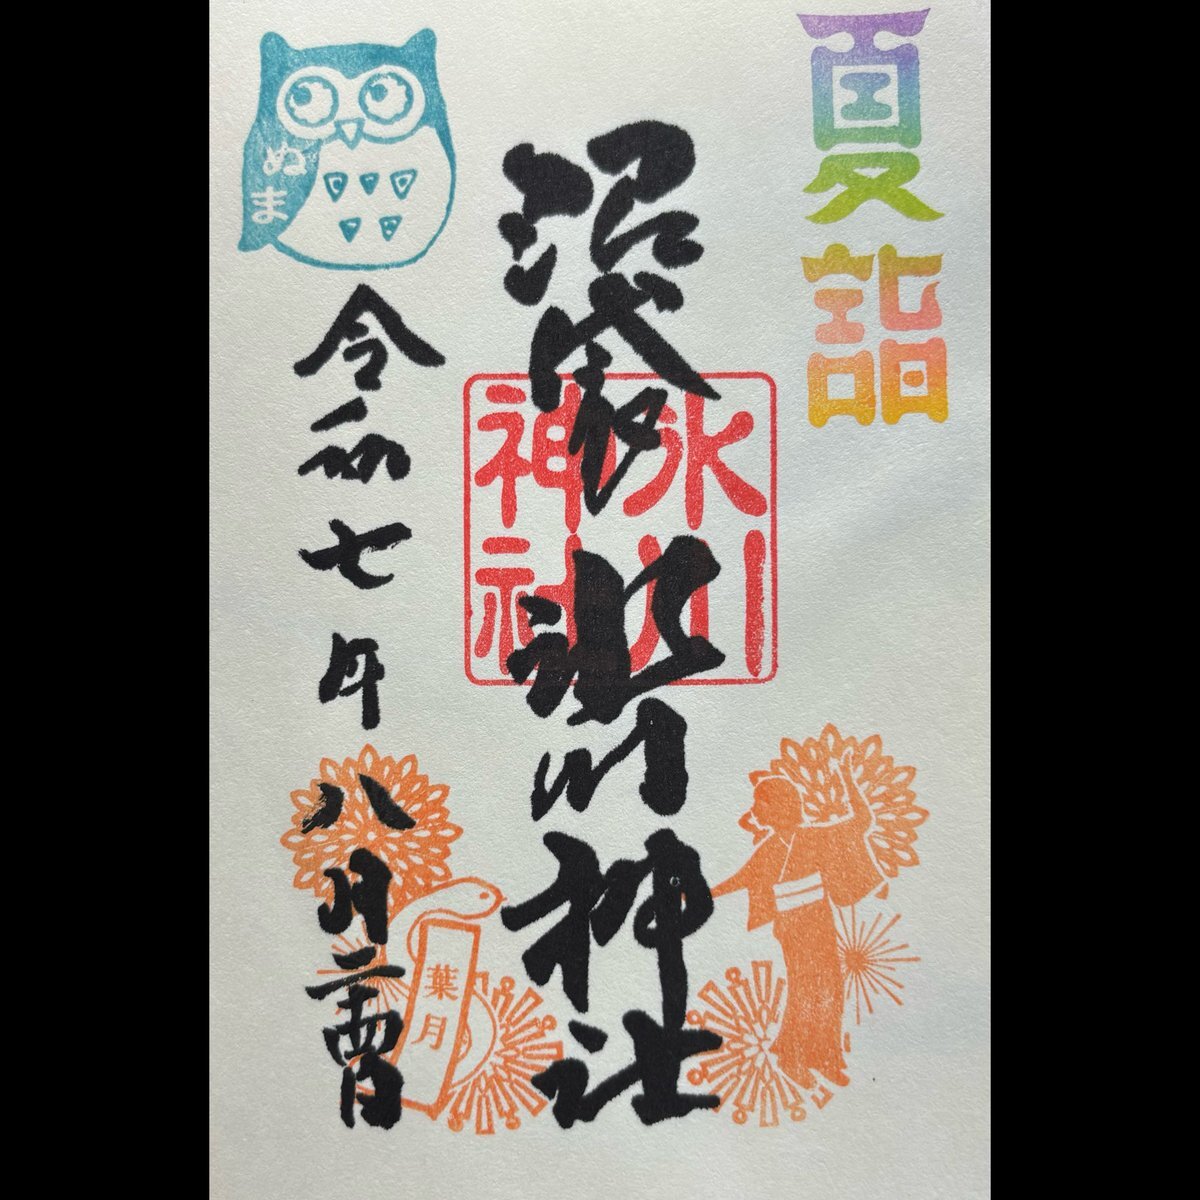 夏詣
沼袋氷川神社
氷川
神社
ぬま
令和七年八月二十四日
葉月